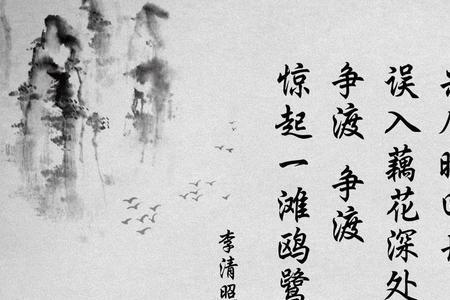 误入藕花深处
争渡 争渡
惊起一滩鸥鹭
李清照